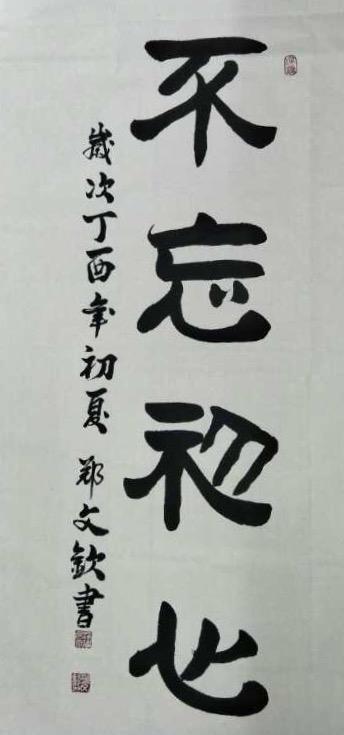 不忘初心
岁次丁酉年初夏 郑文钦書